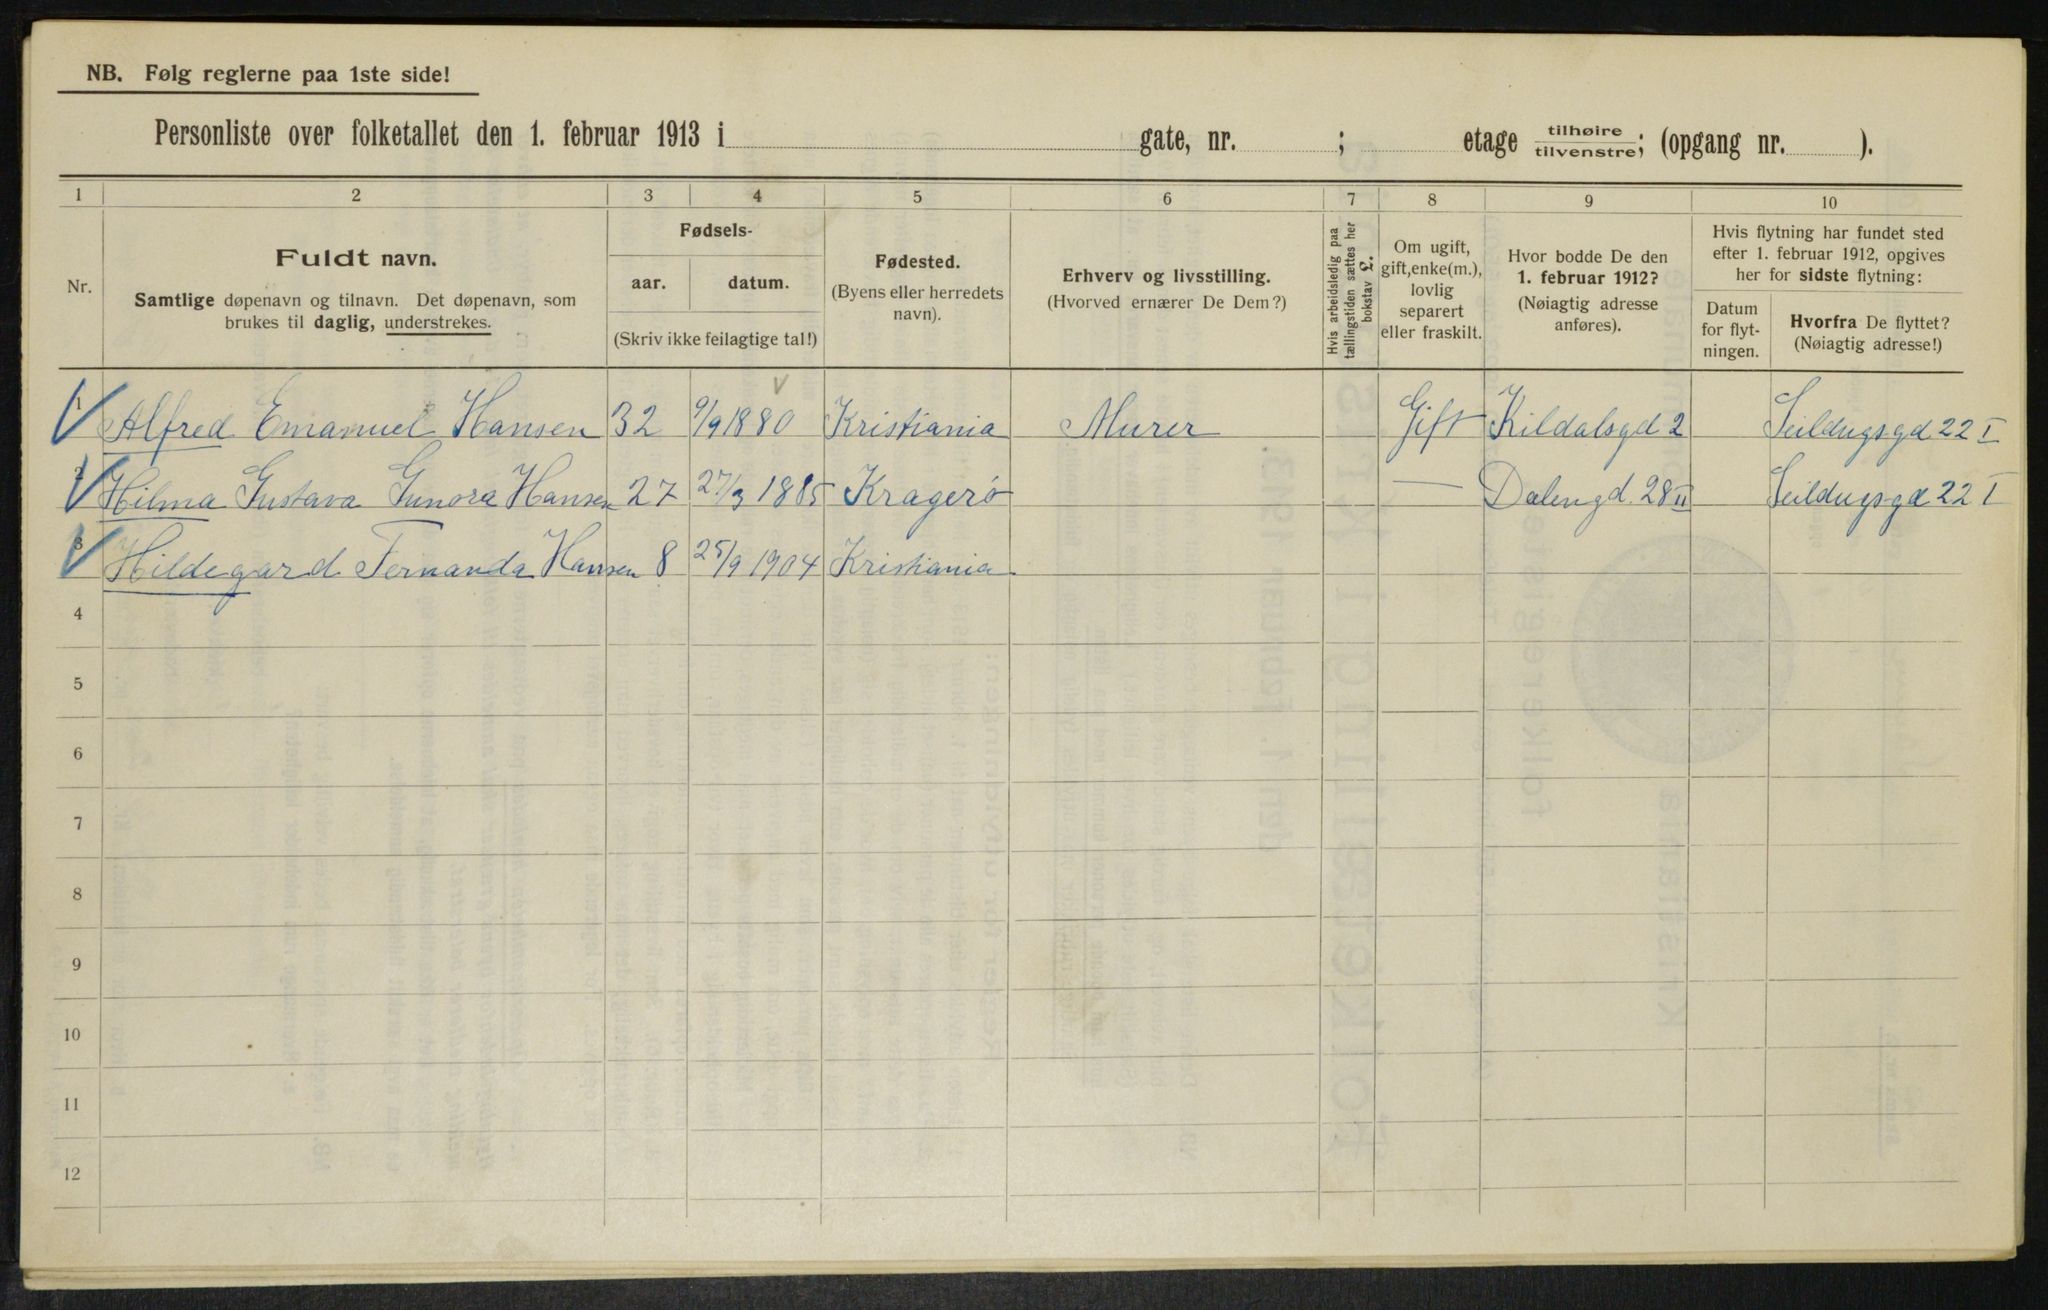 NB. Følg reglerne paa 1ste side!
Personliste over folketallet den 1. februar 1913 i gate, nr. ; etage tilhøire/tilvenstre; (opgang nr. ).
1 2 3 4 5 6 7 8 9 10
Nr.
Fuldt navn.
Samtlige døpenavn og tilnavn. Det døpenavn, som
brukes til daglig, understrekes.
Fødsels-
aar. datum.
(Skriv ikke feilagtige tal!)
Fødested.
(Byens eller herredets
navn).
Erhverv og livsstilling.
(Hvorved ernærer De Dem?)
Hvis arbeidsledig paa
tællingstiden sættes her
bokstav L.
Om ugift,
gift, enke(m.),
lovlig
separert
eller fraskilt.
Hvor bodde De den
1. februar 1912?
(Nøiagtig adresse
anføres).
Hvis flytning har fundet sted
efter 1. februar 1912, opgives
her for sidste flytning:
Datum
for flyt-
ningen.
Hvorfra De flyttet?
(Nøiagtig adresse!)
1 Alfred Emanuel Hansen 32 9/9 1880 Kristiania Murer Gift Kildalsgd 2 Seildugsgd 22 I
2 Hilma Gustava Gunora Hansen 27 27/3 1885 Kragerö — Dalengd. 28 II Seildugsgd 22 I
3 Hildegard Fernanda Hansen 8 25/9 1904 Kristiania
4
5
6
7
8
9
10
11
12